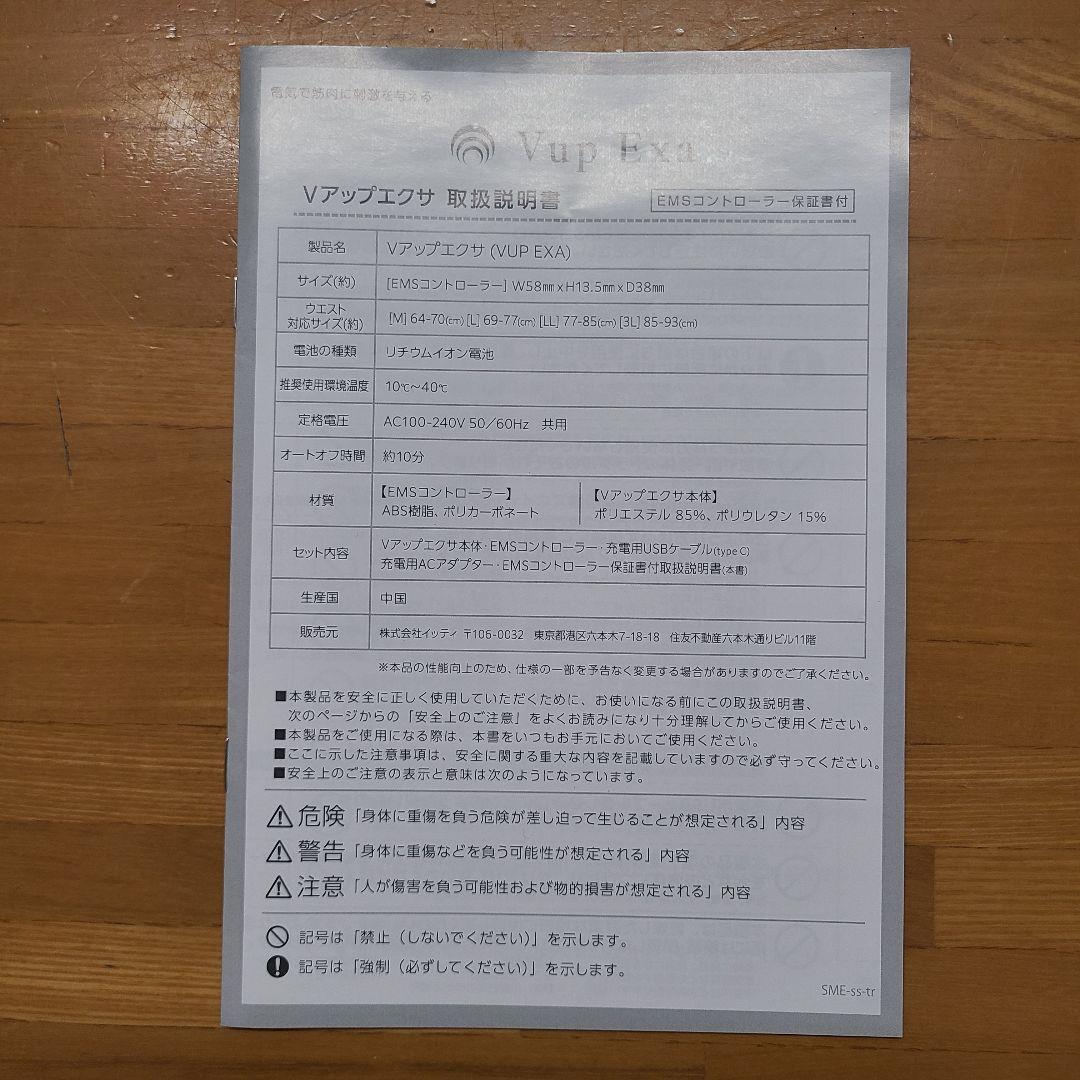 電気で筋肉に刺激を与える
Vup Exa
Vアップエクサ 取扱説明書
EMSコントローラー保証書付
製品名 Vアップエクサ (VUP EXA)
サイズ(約) [EMSコントローラー] W58㎜ x H13.5㎜ x D38㎜
ウエスト
対応サイズ(約) [M] 64-70(cm) [L] 69-77(cm) [LL] 77-85(cm) [3L] 85-93(cm)
電池の種類 リチウムイオン電池
推奨使用環境温度 10℃～40℃
定格電圧 AC100-240V 50／60Hz 共用
オートオフ時間 約10分
材質
【EMSコントローラー】
ABS樹脂、ポリカーボネート
【Vアップエクサ本体】
ポリエステル 85%、ポリウレタン 15%
セット内容
Vアップエクサ本体・EMSコントローラー・充電用USBケーブル(type C)
充電用ACアダプター・EMSコントローラー保証書付取扱説明書(本書)
生産国 中国
販売元 株式会社イッティ 〒106-0032 東京都港区六本木7-18-18 住友不動産六本木通りビル11階
※本品の性能向上のため、仕様の一部を予告なく変更する場合がありますのでご了承ください。
■本製品を安全に正しく使用していただくために、お使いになる前にこの取扱説明書、
次のページからの「安全上のご注意」をよくお読みになり十分理解してからご使用ください。
■本製品をご使用になる際は、本書をいつもお手元においてご使用ください。
■ここに示した注意事項は、安全に関する重大な内容を記載していますので必ず守ってください。
■安全上のご注意の表示と意味は次のようになっています。
⚠危険「身体に重傷を負う危険が差し迫って生じることが想定される」内容
⚠警告「身体に重傷などを負う可能性が想定される」内容
⚠注意「人が傷害を負う可能性および物的損害が想定される」内容
記号は「禁止（しないでください）」を示します。
記号は「強制（必ずしてください）」を示します。
SME-ss-tr